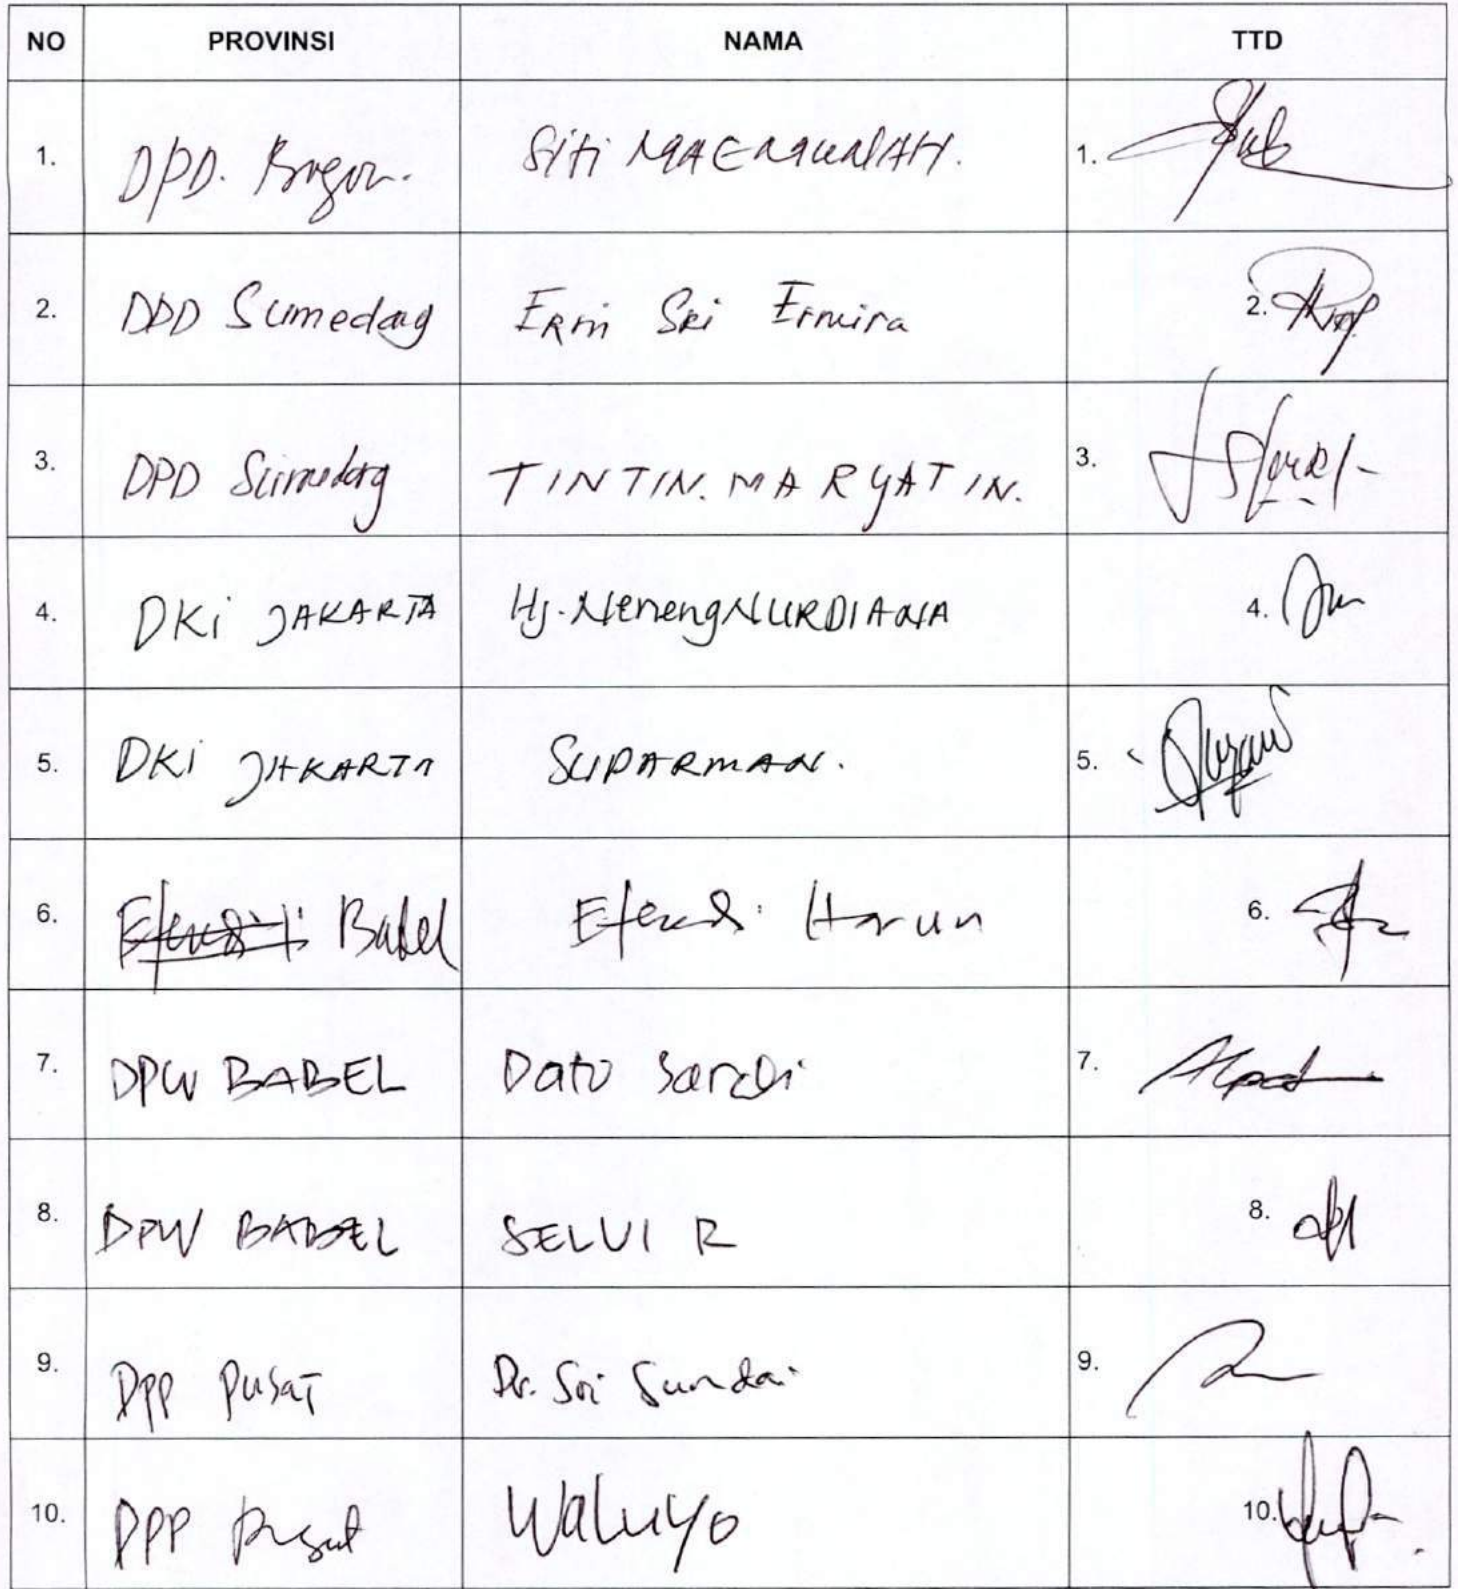 NO PROVINSI NAMA TTD
1. DPD. Bogor. Siti MAEMUNAH. 1.
2. DPD Sumedag Erni Sri Ermira 2.
3. DPD Sumedang TINTIN. MARYATIN. 3.
4. DKi JAKARTA Hj. Neneng NURDIANA 4.
5. DKi JAKARTA SUPARMAN. 5.
6. Babel Efendi Harun 6.
7. DPW BABEL Dato Sardi 7.
8. DPW BABEL SELVI R 8.
9. DPP PUSAT Dr. Sri 9.
10. DPP Pusat Waluyo 10.